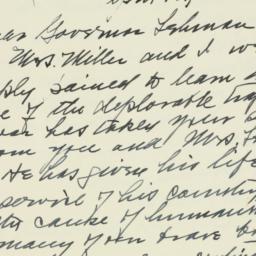 Governor Lehman
Mrs. Miller and I w
pained to learn
of the deplorable
has taken your s
om you and Mrs.
He has given his life
service of his country
the cause of humani
many other brave